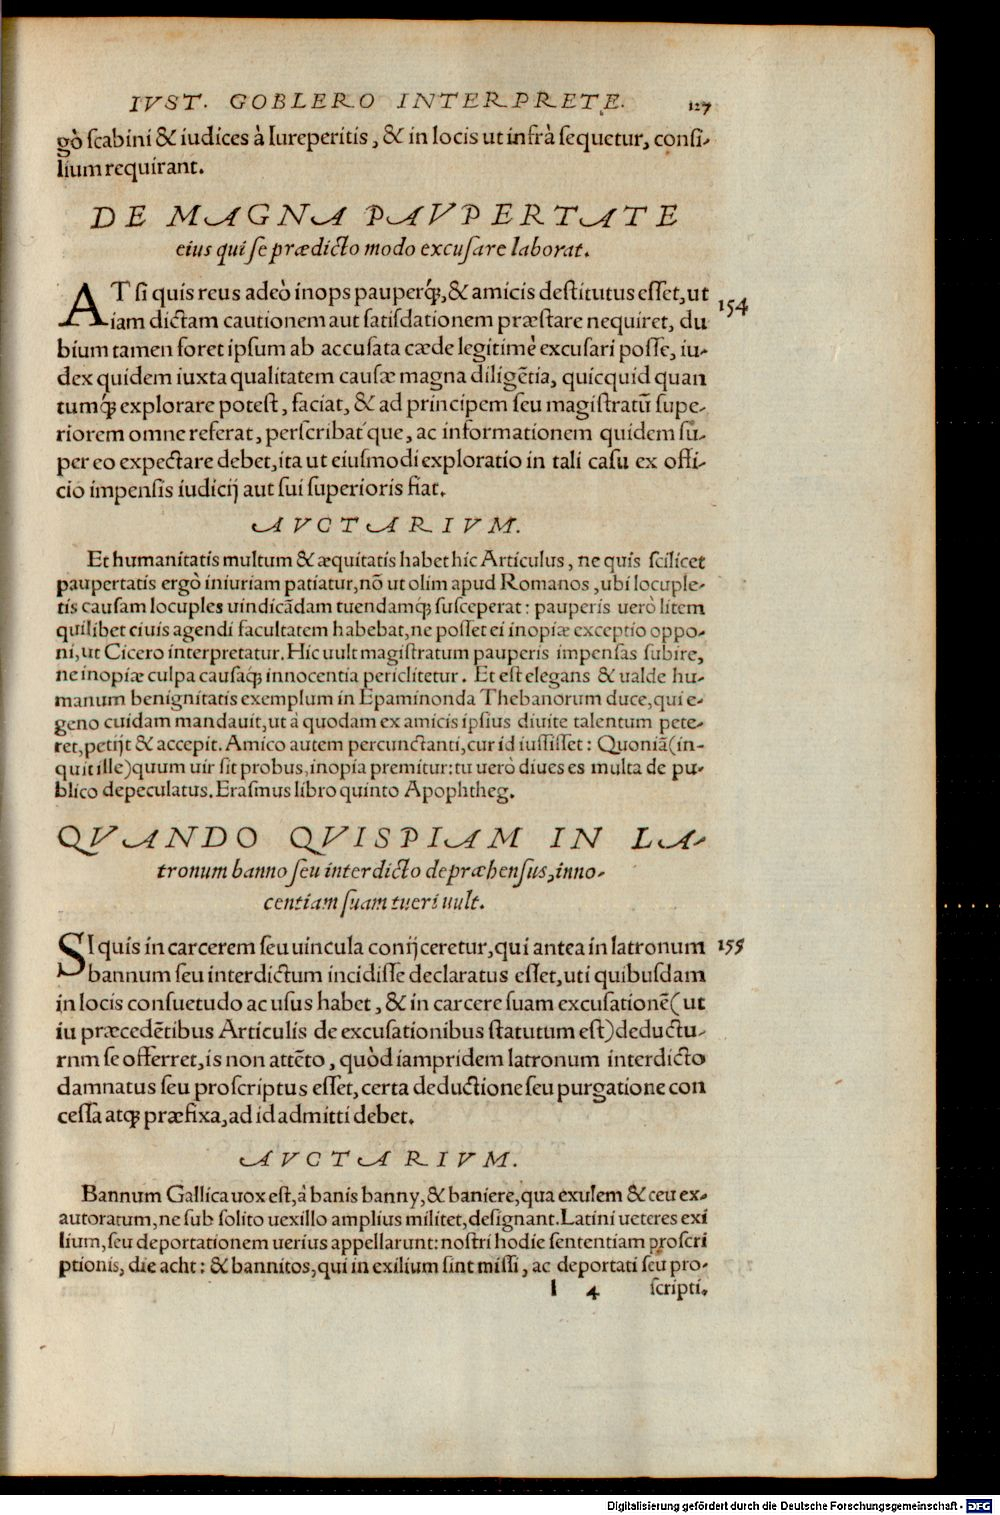 IVST. GOBLERO INTERPRETE. 127
gò scabini & iudices à Iureperitis, & in locis ut infrà sequetur, consi-
lium requirant.
DE MAGNA PAVPERTATE
eius qui se prædicto modo excusare laborat.
AT si quis reus adeò inops pauperq́;, & amicis destitutus esset, ut 154
iam dictam cautionem aut satisdationem præstare nequiret, du
bium tamen foret ipsum ab accusata cæde legitimè excusari posse, iu-
dex quidem iuxta qualitatem causæ magna diligẽtia, quicquid quan
tumq́; explorare potest, faciat, & ad principem seu magistratũ supe-
riorem omne referat, perscribat´que, ac informationem quidem su-
per eo expectare debet, ita ut eiusmodi exploratio in tali casu ex offi-
cio impensis iudicij aut sui superioris fiat.
AVCTARIVM.
Et humanitatis multum & æquitatis habet hic Articulus, ne quis scilicet
paupertatis ergò iniuriam patiatur, nõ ut olim apud Romanos, ubi locuple-
tis causam locuples uindicãdam tuendamq́; susceperat: pauperis uerò litem
quilibet ciuis agendi facultatem habebat, ne posset ei inopiæ exceptio oppo-
ni, ut Cicero interpretatur. Hic uult magistratum pauperis impensas subire,
ne inopiæ culpa causaq́; innocentia periclitetur. Et est elegans & ualde hu-
manum benignitatis exemplum in Epaminonda Thebanorum duce, qui e-
geno cuidam mandauit, ut à quodam ex amicis ipsius diuite talentum pete-
ret, petijt & accepit. Amico autem percunctanti, cur id iussisset: Quoniã (in-
quit ille) quum uir sit probus, inopia premitur: tu uerò diues es multa de pu-
blico depeculatus. Erasmus libro quinto Apophtheg.
QVANDO QVISPIAM IN LA-
tronum banno seu interdicto depræhensus, inno-
centiam suam tueri uult.
SI quis in carcerem seu uincula conijceretur, qui antea in latronum 155
bannum seu interdictum incidisse declaratus esset, uti quibusdam
in locis consuetudo ac usus habet, & in carcere suam excusationẽ (ut
iu præcedẽtibus Articulis de excusationibus statutum est) deductu-
rnm se offerret, is non attẽto, quòd iampridem latronum interdicto
damnatus seu proscriptus esset, certa deductione seu purgatione con
cessa atq́; præfixa, ad id admitti debet.
AVCTARIVM.
Bannum Gallica uox est, à banis banny, & baniere, qua exulem & ceu ex-
autoratum, ne sub solito uexillo amplius militet, designant. Latini ueteres exi
lium, seu deportationem uerius appellarunt: nostri hodie sententiam proscri
ptionis, die acht: & bannitos, qui in exilium sint missi, ac deportati seu pro-
l 4 scripti.
Digitalisierung gefördert durch die Deutsche Forschungsgemeinschaft - DFG